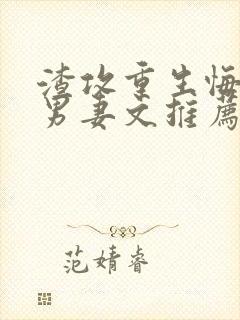 渣攻重生悔
男妻文推薦
范婧睿